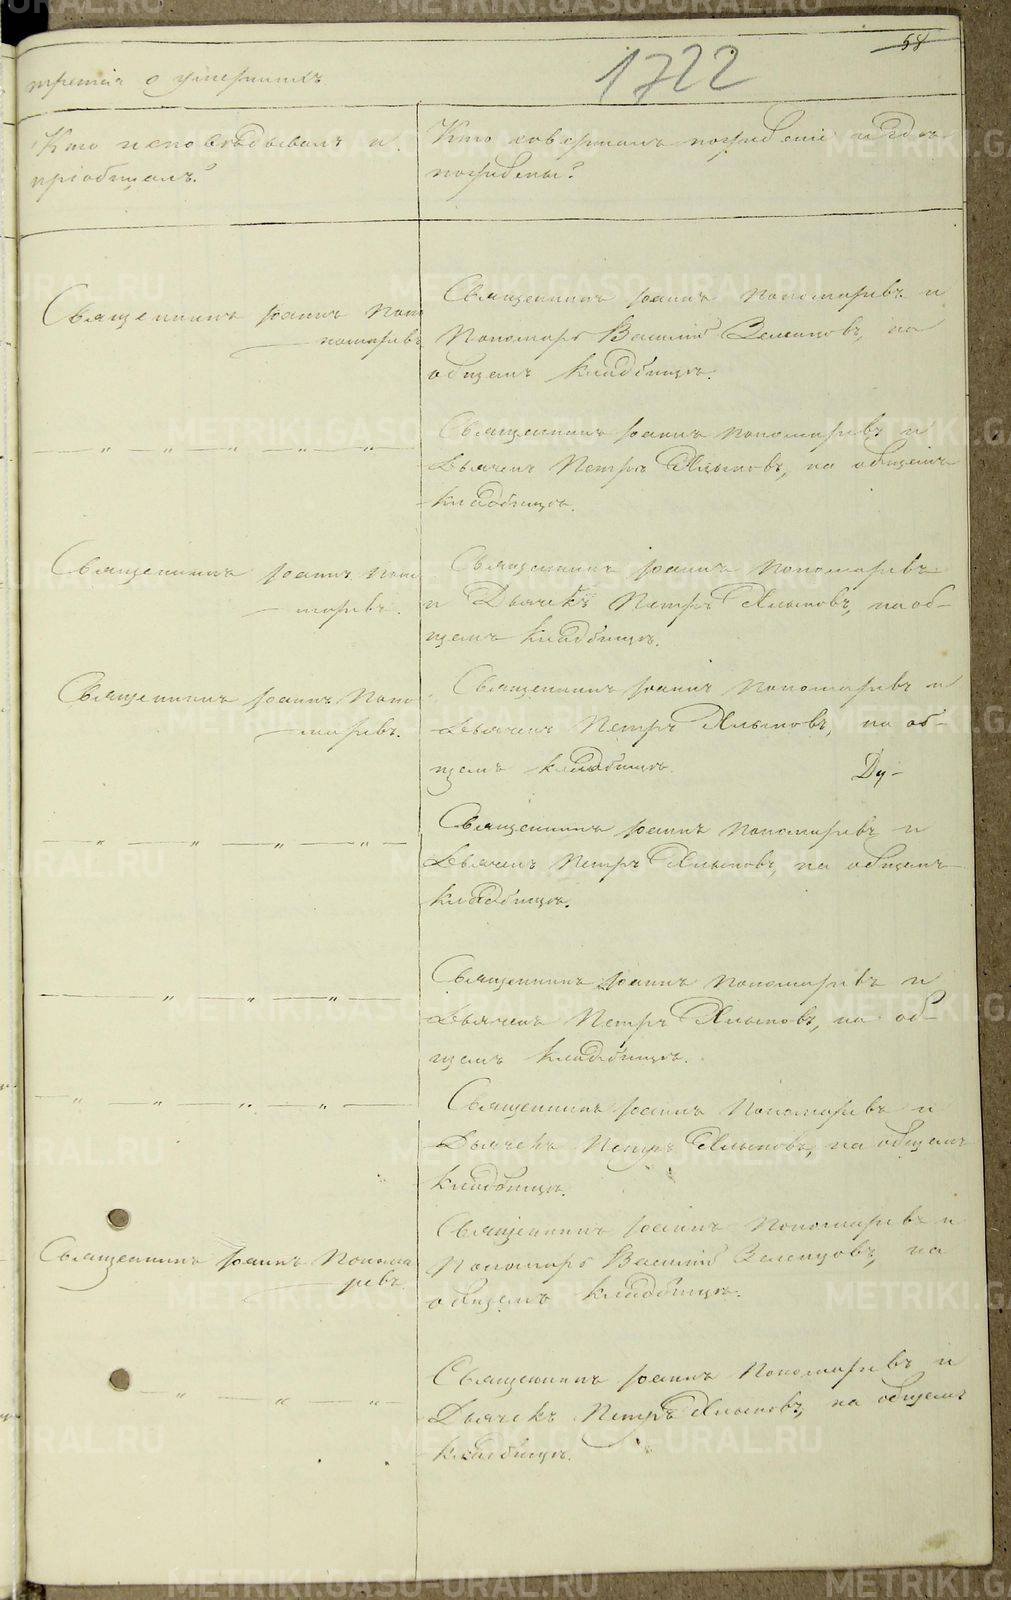 третія о умершихъ
1722
58
Кто исповѣдывалъ и
пріобщалъ?
Кто совершалъ погребеніе и гдѣ
погребены?
Священникъ Іоаннъ Поно
номаревъ
Священникъ Іоаннъ Пономаревъ и
Пономарь Василій Зеленцовъ, на
общемъ кладбищѣ.
— " — " — " — " — " —
Священникъ Іоаннъ Пономаревъ и
Дьячекъ Петръ на общемъ
кладбищѣ.
Священникъ Іоаннъ Поно
маревъ.
Священникъ Іоаннъ Пономаревъ
и Дьячекъ Петръ на об-
щемъ кладбищѣ.
Священникъ Іоаннъ Поно
маревъ.
Священникъ Іоаннъ Пономаревъ и
Дьячекъ Петръ на об-
щемъ кладбищѣ.
Ду-
— " — " — " — " —
Священникъ Іоаннъ Пономаревъ и
Дьячекъ Петръ на общемъ
кладбищѣ.
— " — " — " —
Священникъ Іоаннъ Пономаревъ и
Дьячекъ Петръ на об-
щемъ кладбищѣ.
— " — " — " — " —
Священникъ Іоаннъ Пономаревъ и
Дьячекъ Петръ на общемъ
кладбищѣ.
Священникъ Іоаннъ Понома
ревъ
Священникъ Іоаннъ Пономаревъ и
Пономарь Василій Зеленцовъ, на
общемъ кладбищѣ.
— " — " — " —
Священникъ Іоаннъ Пономаревъ и
Дьячекъ Петръ на общемъ
кладбищѣ.
METRIKI.GASO-URAL.RU